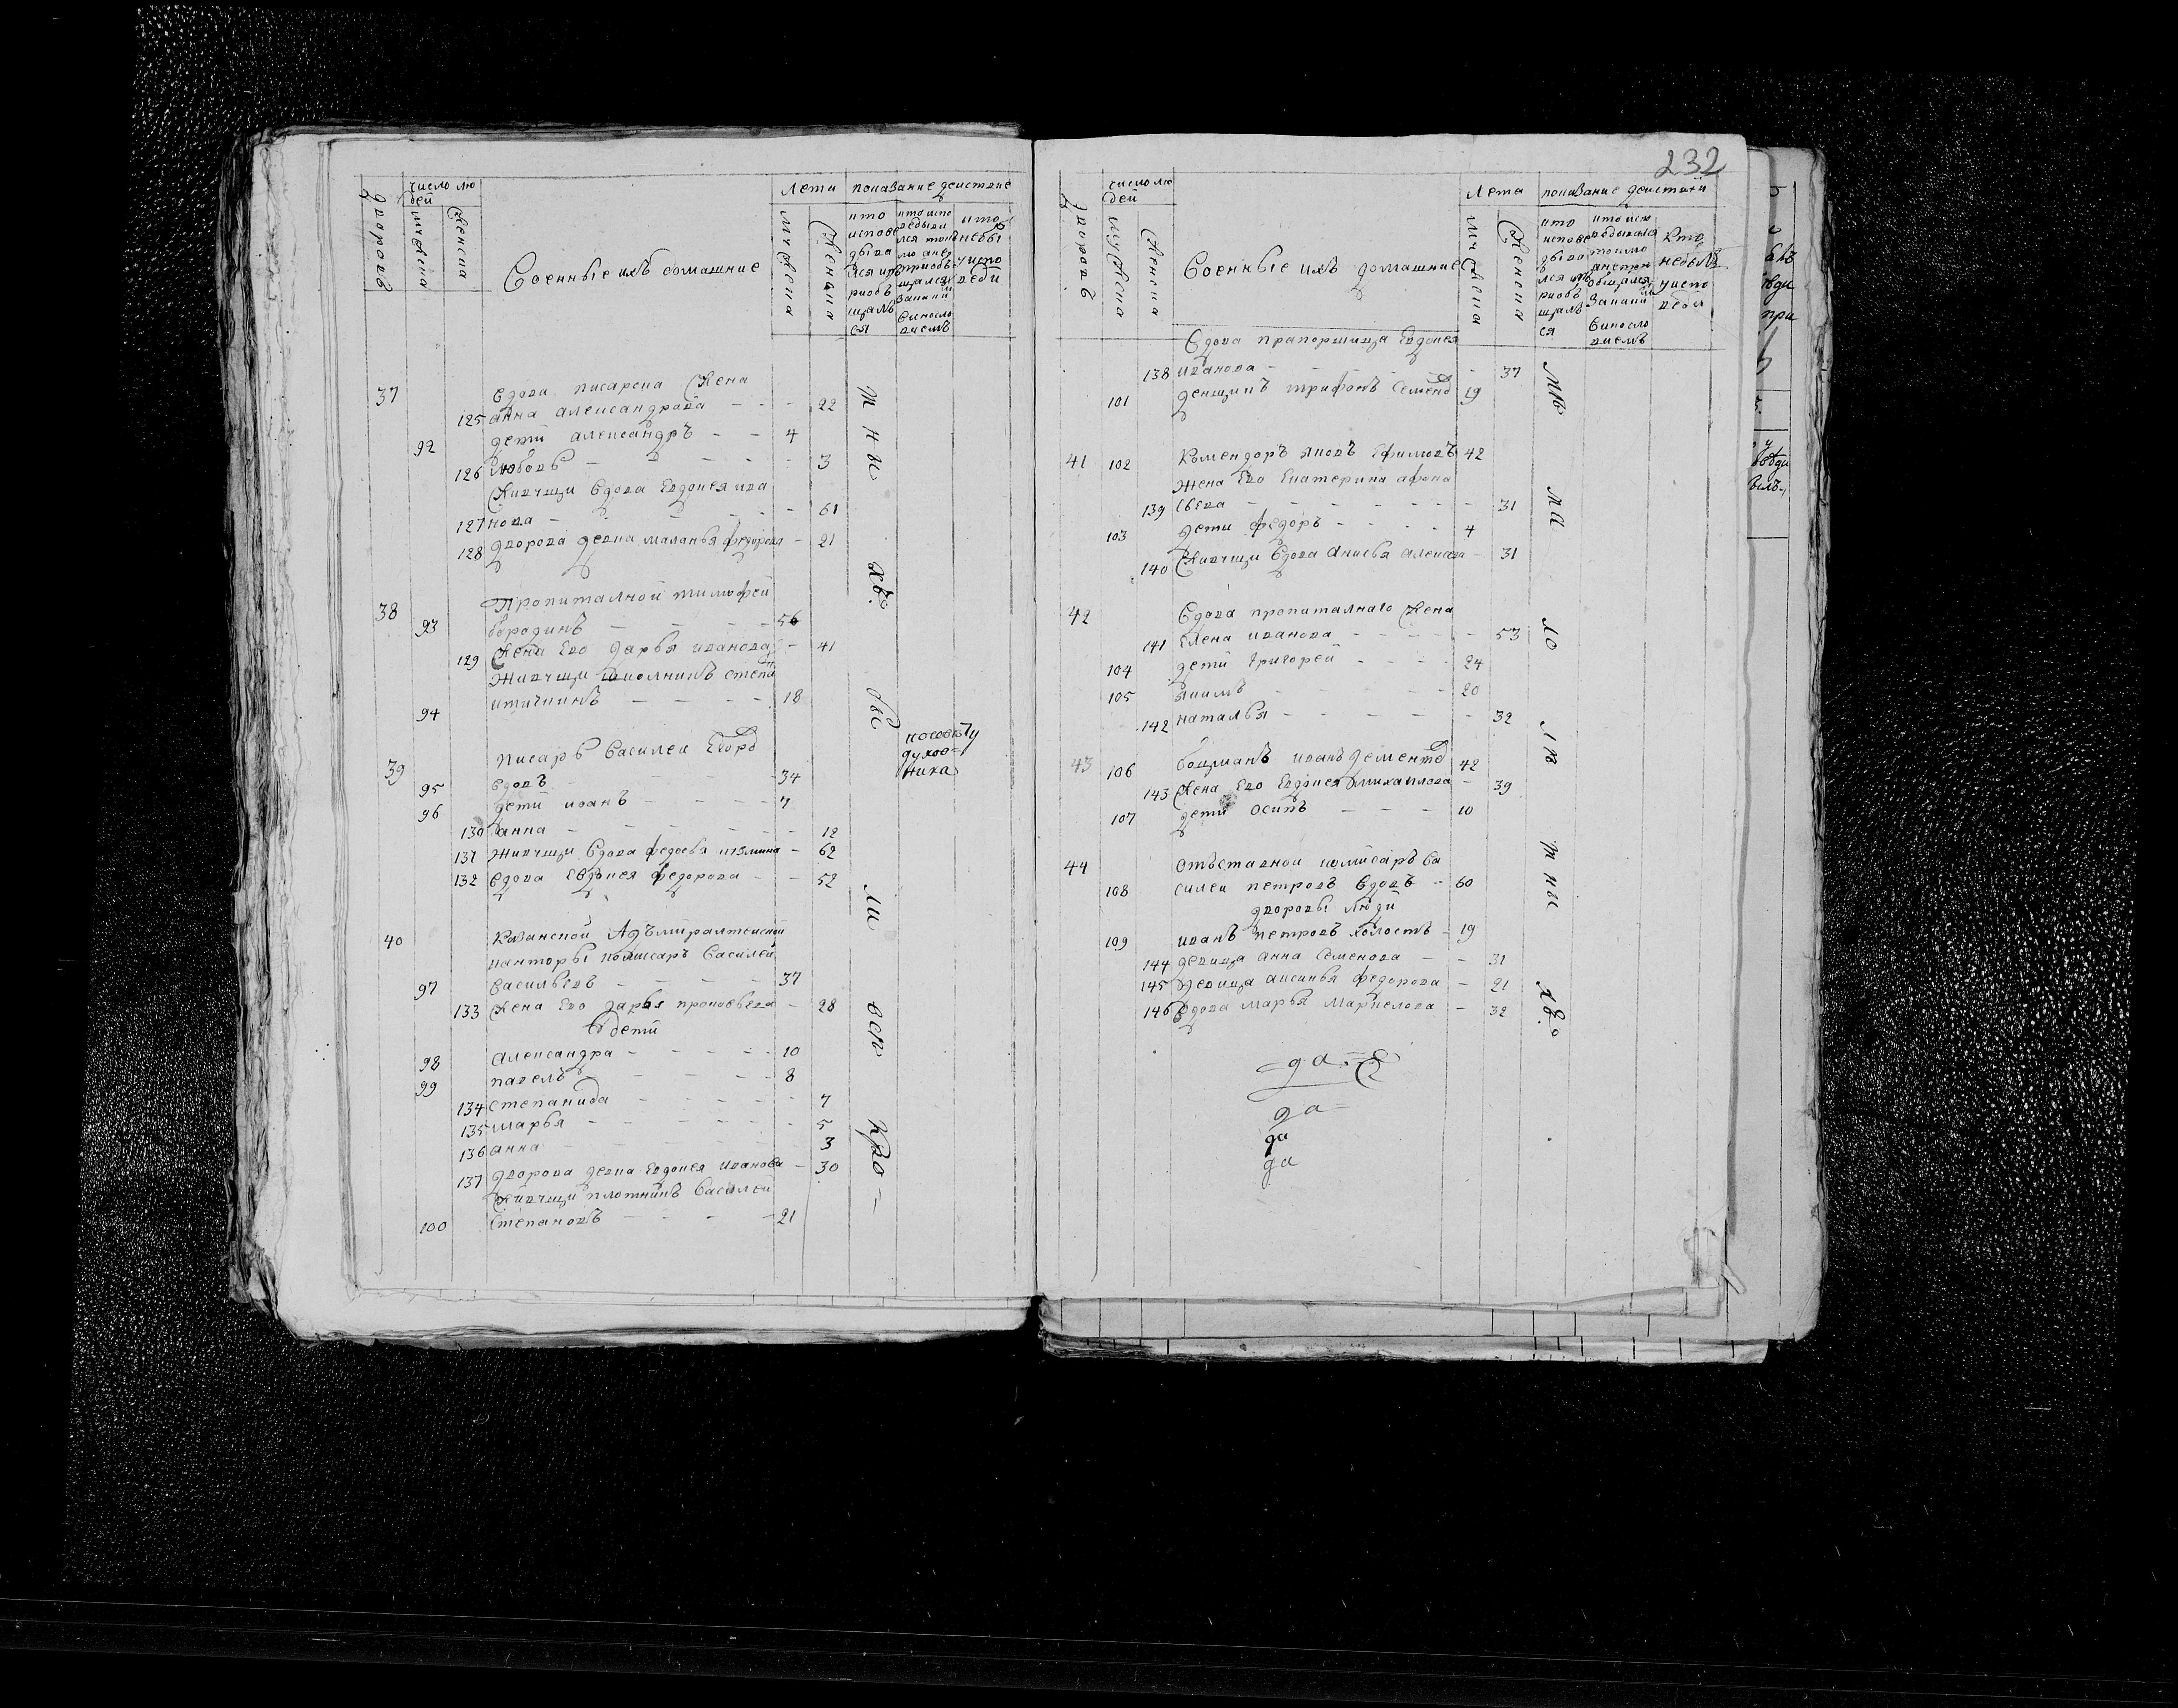 дворовъ
число лю
дей
мужеска
женска
Военные ихъ домашние
Лета
мужеска
женска
показание действие
кто
испове
дыва
лся и п
риобъ
щалъ
ся
кто испо
ведыва
лся токъ
мо а не п
риобъ
щался и
за каки
м
виносло
виемъ
кто
небы
у испо
веди
37
Вдова писарска жена
125 анна александрова - - - 22
92 дети александръ - - 4
126 любовь - - - - - 3
живущи Вдова Евдокея ива
127 нова - - - - - 61
128 дворова девка маланья федорова - 21
38 Пропиталной тимофеи
93 бородинъ - - - - 56
129 жена Ево дарья иванова - 41
живущи школникъ степа
94 - - - - 18
39 Писарь василеи Егоро
95 вдовъ - - - 34
96 дети иванъ - - - 7
130 анна - - - - - 12
131 живущи вдова федосья кузмина - 62
132 вдова Евдокея федорова - - 52
по совету
духов-
ника
40 Казанской Адъмиралтейской
канторы комисаръ василей
97 васильевъ - - - - 37
133 жена Ево дарья прокоевьева - 28
дети
98 александра - - - - 10
99 павелъ - - - - 8
134 степанида - - - - 7
135 марья - - - - - 5
136 анна - - - - - 3
137 дворова девка Евдокея иванова - 30
живущи плотникъ василеи
100 степановъ - - - - 21
тни
хъ.
бы
ли
вси
232
дворовъ
число лю
дей
мужеска
женска
Военные ихъ домашние
Лета
мужеска
женска
показание действий
кто
испове
дыва
лся и п
риобъ
щалъ
ся
Кто
небылъ
у испо
веди
Вдова прапорщица Евдокея
138 иванова - - - - - 37
101 денщикъ трифонъ семено 19
41 102 Комендоръ яковъ Ефимовъ 42
жена Ево Екатерина афона
139 сьева - - - - - - 31
103 дети федоръ - - - - 4
140 живущи вдова анисья алексеева - 31
42 Вдова пропиталнаго жена
141 Елена иванова - - - - - 53
104 дети григорей - - - - 24
105 якимъ - - - - - 20
142 наталья - - - - - 32
43 106 боцманъ иванъ дементе 42
143 жена Ево Евдокея михаилова - 39
107 дети осипъ - - - 10
44 отъставной комисаръ ва
108 силеи петровъ вдовъ - 60
дворовы люди
109 иванъ петровъ холостъ - 19
144 девица анна семенова - - 31
145 девица аксинья федорова - 21
146 вдова марья маркелова - 32
ма
ло
ле
тни
хъ.
да
да
да
да